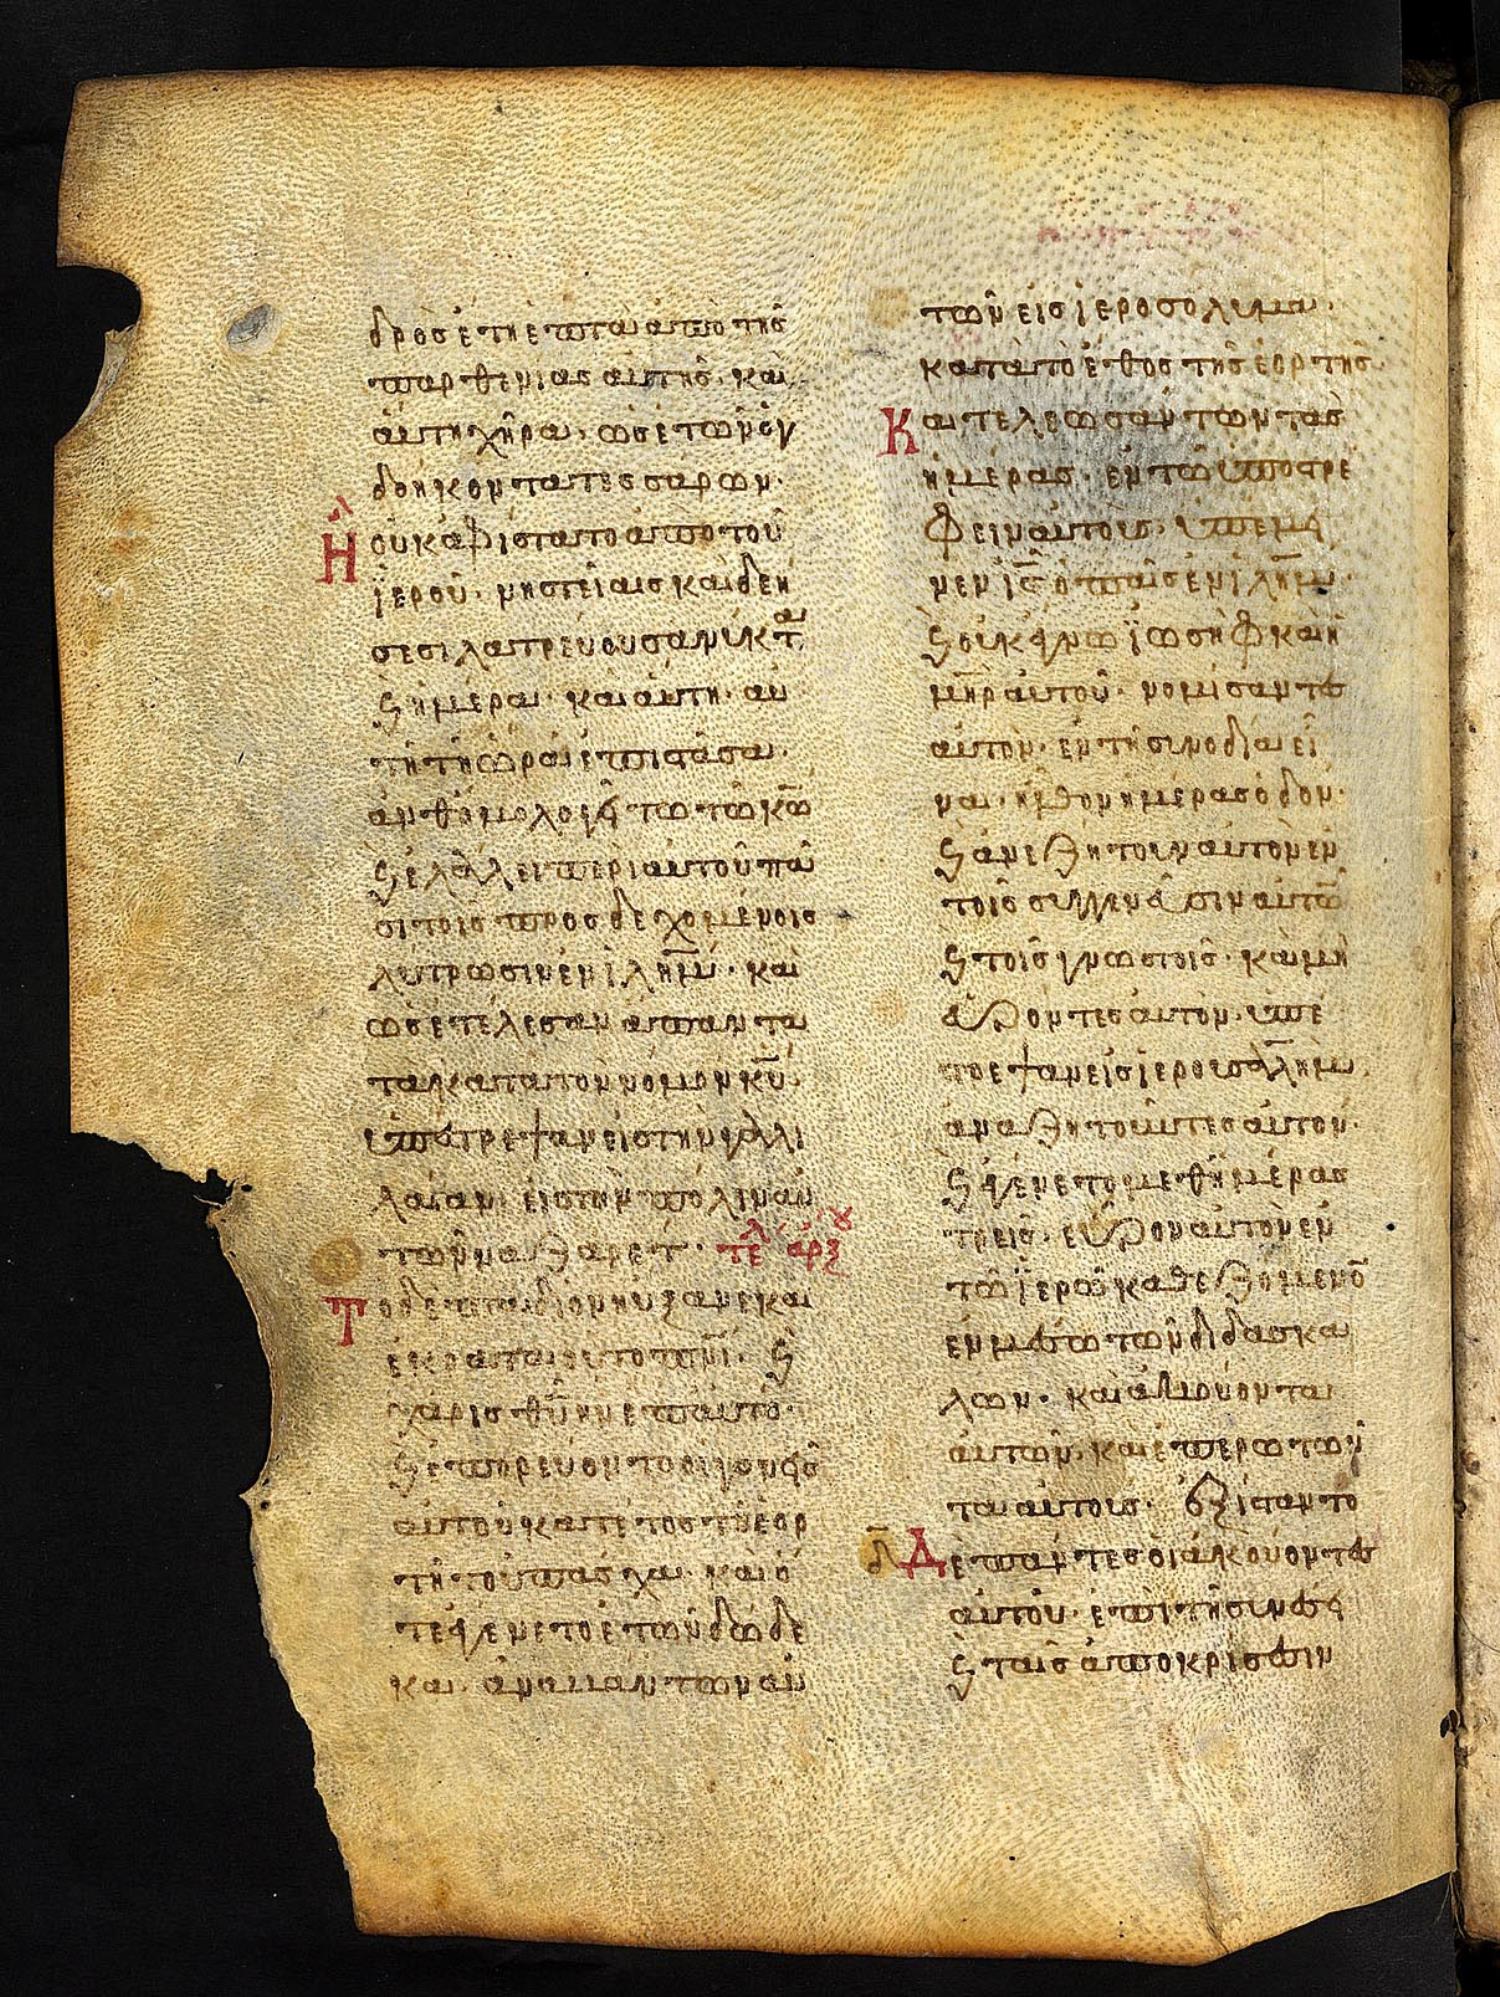 δρὸς ἔτη ἑπτὰ ἀπὸ τῆς
παρθενίας αὐτῆς· καὶ
αὐτὴ χῆρα, ὡς ἐτῶν ὀγ
δοήκοντα τεσσάρων·
Ἣ οὐκ ἀφίστατο ἀπὸ τοῦ
ἱεροῦ· νηστείαις καὶ δεή
σεσι λατρεύουσα νύκτα
ϗ ἡμέραν· καὶ αὕτη· αὐ
τῇ τῇ ὥρα ἐπιστᾶσα·
ἀνθομολογεῖτω τῶ κω
ϗ ἐλάλει περὶ αὐτοῦ πᾶ
σι τοῖς προσδεχομένοις
λύτρωσιν ἐν ιλημ· καὶ
ὡς ἐτέλεσαν ἅπαντα
τὰ κατὰ τὸν νόμον κυ·
ὑπέστρεψαν εἰς τὴν γαλι
λαίαν· εἰς τὴν πόλιν αὐ
τῶν ναζαρετ· τελ αρξου
Τὸ δὲ παιδίον ηὔξανε καὶ
ἐκραταιοῦτο πνι· ϗ
χάρις θυ ἦν ἐπ αὐτό·
ϗ ἐπορεύοντο οἱ γονεῖς
αὐτοῦ κατ ἔτος τῇ ἑορ
τῇ τοῦ πάσχα· καὶ ὅ
τε ἐγένετο ἐτῶν δώδε
κα· ἀναβάντων αὐ
τῶν εἰς ἱεροσόλυμα·
κατὰ τὸ ἔθος τῆς ἑορτῆς·
Και τελεωσάντων τὰς
ἡμέρας· ἐν τῶ ὑποστρέ
φειν αὐτοὺς· ὑπέμει
νεν ις ὁ παῖς ἐν ιλημ·
ϗ οὐκ ἔγνω ἰωσὴφ καὶ ἡ
μηρ αὐτοῦ· νομίσαντες
αὐτὸν· ἐν τῇ συνοδία εἶ
ναι· ἦλθον ἡμέρας ὁδὸν·
ϗ ἀνεζήτουν αὐτὸν ἐν
τοῖς συγγενέσιν αὐτῶ
ϗ τοῖς γνωστοῖς· καὶ μὴ
εὑρόντες αὐτὸν· ὑπέ
στρεψαν εἰς ιερουσαλημ
ἀναζητοῦντες αὐτὸν·
ϗ ἐγένετο μεθ ἡμέρας
τρεῖς· εὗρον αὐτὸν ἐν
τῶ ἱερῶ καθεζόμενο
ἐν μέσω τῶν διδασκά
λων· καὶ ἀκούοντα
αὐτῶν, καὶ ἐπερωτῶν
τα αὐτούς· ἐξίσταντο
δὲ πάντες οἱ ἀκούοντες
αὐτοῦ· ἐπὶ τῇ συνέσει
ϗ ταῖς ἀποκρίσεσιν